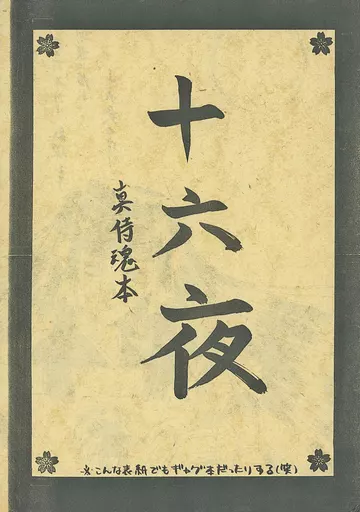 十六夜
真侍魂本
※こんな表紙でもギャグ本だったりする(笑)